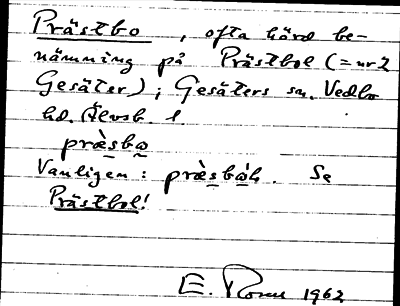 Prästbo, ofta hörd be-
nämning på Prästbol (= nr 2
Gesäter); Gesäters sn. Vedbo
hd. Älvsb. l.
præ̀sbo̰
Vanligen: præ̀sbo̰̍l. Se
Prästbol!
E. 1962